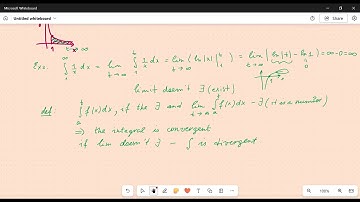 Microsoft Whiteboard
Untitled whiteboard
t → ∞
Exs. ∫₁^∞ 1/x dx = lim_{t→∞} ∫₁^t 1/x dx = lim_{t→∞} (ln|x| |₁^t) = lim_{t→∞} (ln|t| - ln1) = ∞ - 0 = ∞
0
limit doesn't ∃ (exist)
def: ∫ f(x)dx, if the ∃ and lim_{t→∞} ∫ₐ^t f(x)dx - ∃ (it is a number)
⇒ the integral is convergent
if lim doesn't ∃ - ∫ is divergent
100%